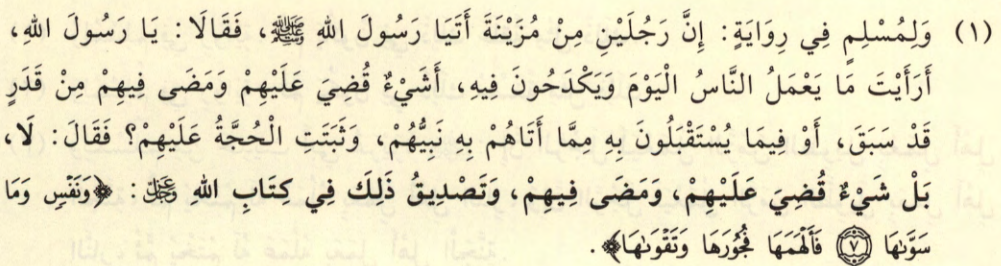 (١) وَلِمُسْلِمٍ فِي رِوَايَةٍ: إِنَّ رَجُلَيْنِ مِنْ مُزَيْنَةَ أَتَيَا رَسُولَ اللهِ ﷺ، فَقَالَا: يَا رَسُولَ اللهِ،
أَرَأَيْتَ مَا يَعْمَلُ النَّاسُ الْيَوْمَ وَيَكْدَحُونَ فِيهِ، أَشَيْءٌ قُضِيَ عَلَيْهِمْ وَمَضَى فِيهِمْ مِنْ قَدَرٍ
قَدْ سَبَقَ، أَوْ فِيمَا يُسْتَقْبَلُونَ بِهِ مِمَّا أَتَاهُمْ بِهِ نَبِيُّهُمْ، وَثَبَتَتِ الْحُجَّةُ عَلَيْهِمْ؟ فَقَالَ: لَا،
بَلْ شَيْءٌ قُضِيَ عَلَيْهِمْ، وَمَضَى فِيهِمْ، وَتَصْدِيقُ ذَلِكَ فِي كِتَابِ اللهِ عَزَّ وَجَلَّ: ﴿وَنَفْسٍ وَمَا
سَوَّىٰهَا ٧ فَأَلْهَمَهَا فُجُورَهَا وَتَقْوَىٰهَا﴾.